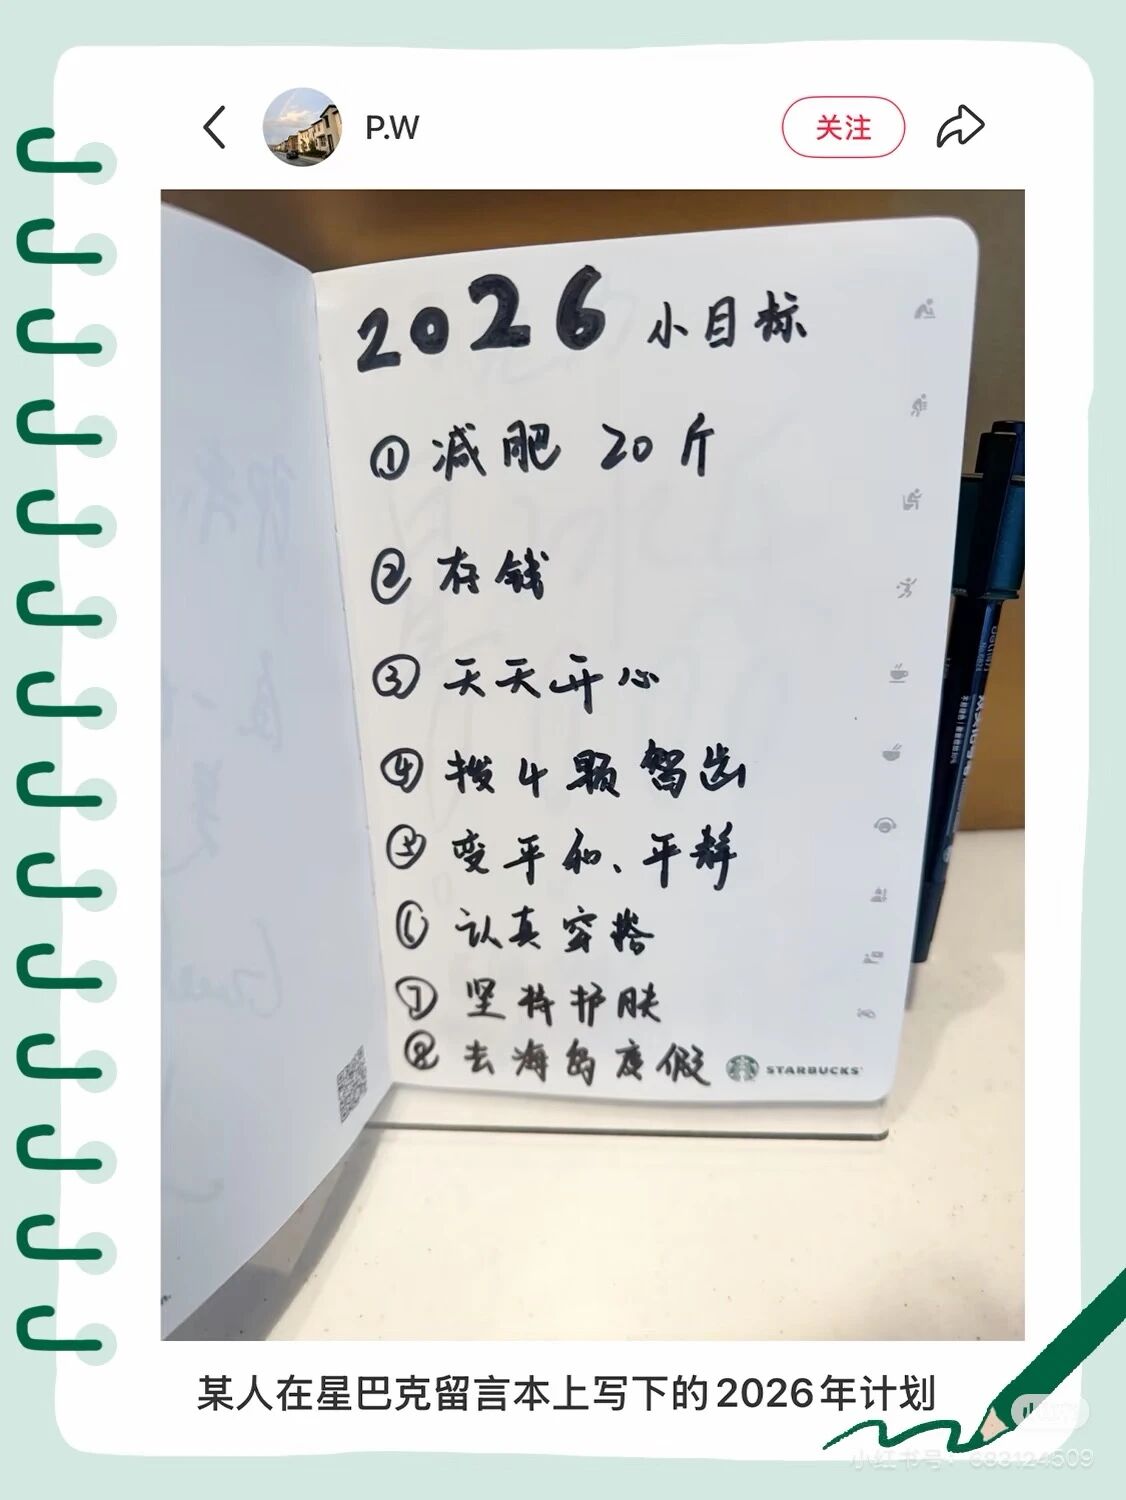 P.W
关注
2026 小目标
① 减肥 20斤
② 存钱
③ 天天开心
④ 拔4颗智齿
⑤ 变平和、平静
⑥ 认真穿搭
⑦ 坚持护肤
⑧ 去海岛度假
STARBUCKS
某人在星巴克留言本上写下的2026年计划
小红书号: